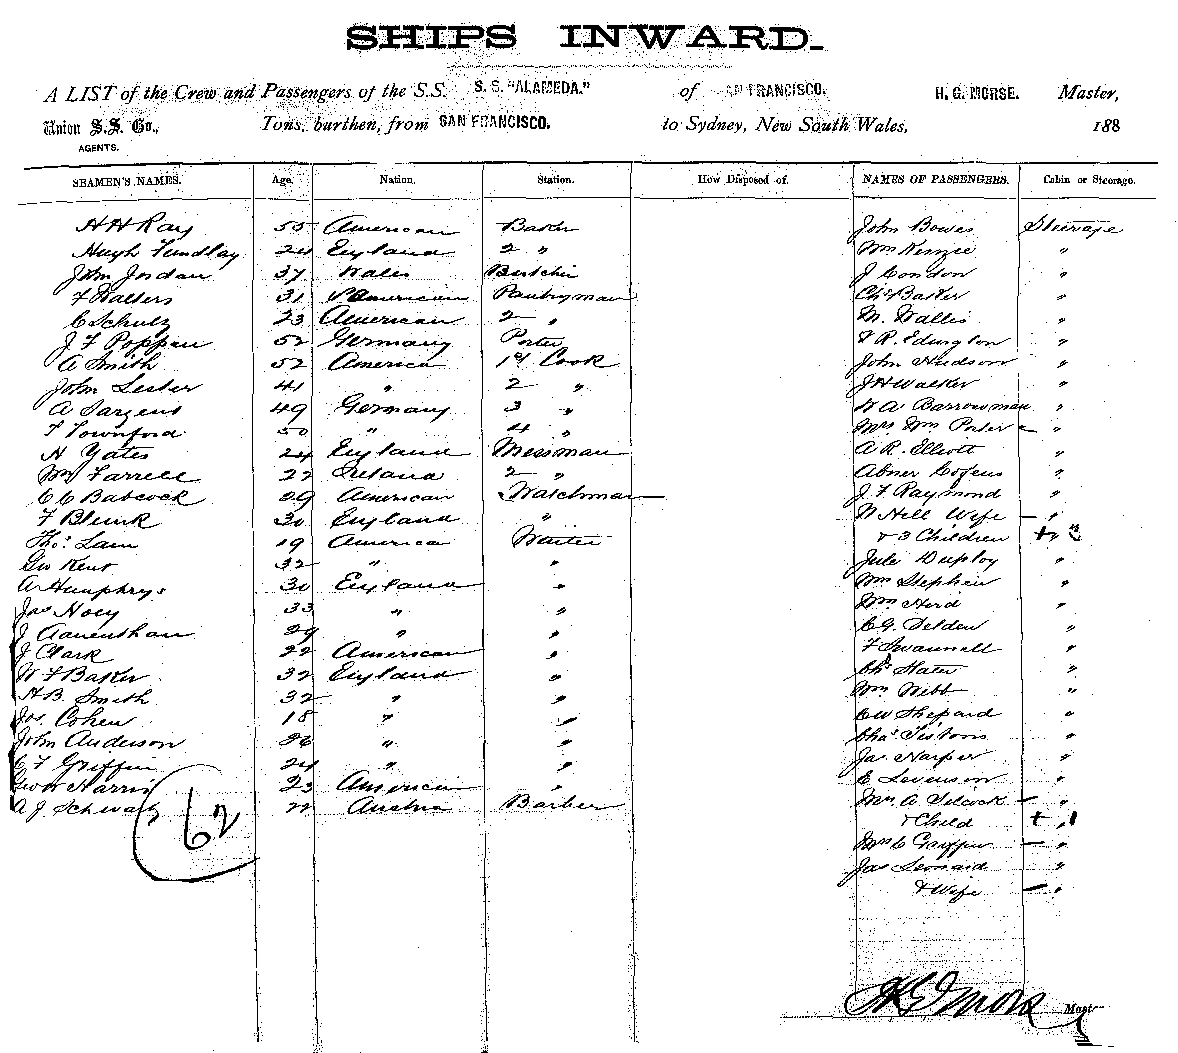 SHIPS INWARD.
A LIST of the Crew and Passengers of the S.S. S. S. "ALAMEDA." of SAN FRANCISCO. H. G. MORSE. Master,
Union S.S. Co., Tons, burthen, from SAN FRANCISCO. to Sydney, New South Wales, 188
AGENTS.
SEAMEN'S NAMES. Age. Nation. Station. How Disposed of. NAMES OF PASSENGERS. Cabin or Steerage.
H H Ray 55 American Baker John Bowes Steerage
Hugh Fundlay 24 England 2 " Wm Kenzie "
John Jordan 37 Wales Butcher J Condon "
F Walters 31 American Pantryman Chs Baker "
C Schulz 23 American 2 " M. Wallis "
J. F Poppen 52 Germany Porter F R. Edington "
A Smith 52 America 1st Cook John Hudson "
John Lester 41 " 2 " J H Walker "
A Sargent 49 Germany 3 " W A Barrowman "
F Townford 50 " 4 " Mrs Wm Porter - "
H Yates 24 England Messman A R. Elliott "
Wm Farrell 22 Ireland 2 " Abner Cofens "
C C Babcock 29 American Watchman J. F Raymond "
F Blunk 30 England " W Hill Wife - "
Thos. Lam 19 America Waiter & 3 Children + " 3
Geo Kent 32 " " Jule Duploy "
A Humphrys 30 England " Wm Stephen "
Jas Hoey 33 " " Wm Hird "
J 29 " " C G. Selden "
J Clark 22 American " F Swannell "
W F Baker 32 England " Chs Slater "
H B. Smith 32 " " Wm Webb "
Jos. Cohen 18 " " C W Shepard "
John Anderson 26 " " Chas "
C F Griffin 24 " " Jas Harper "
Geo W Harris 23 American " C Levenson "
A J. Schwatz 22 Austria Barber Mrs A. Silcock - "
& Child + " 1
62
Mrs C Griffin - "
Jas Leonard "
& Wife - "
H G Morse Master